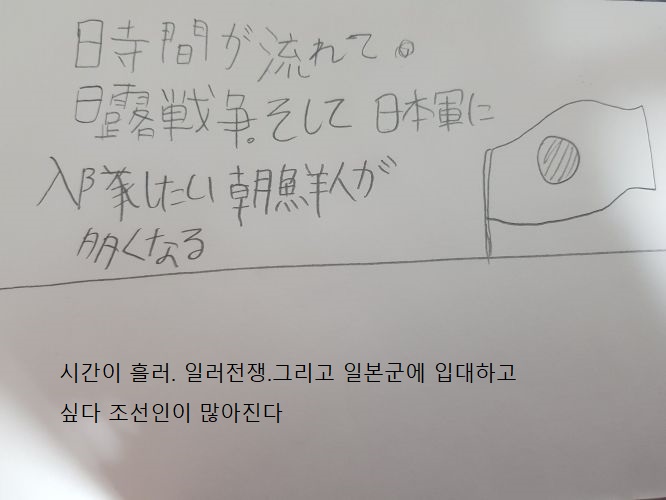 時間が流れて。
日露戦争。そして 日本軍に
入隊したい 朝鮮人が
多くなる
시간이 흘러. 일러전쟁.그리고 일본군에 입대하고
싶다 조선인이 많아진다